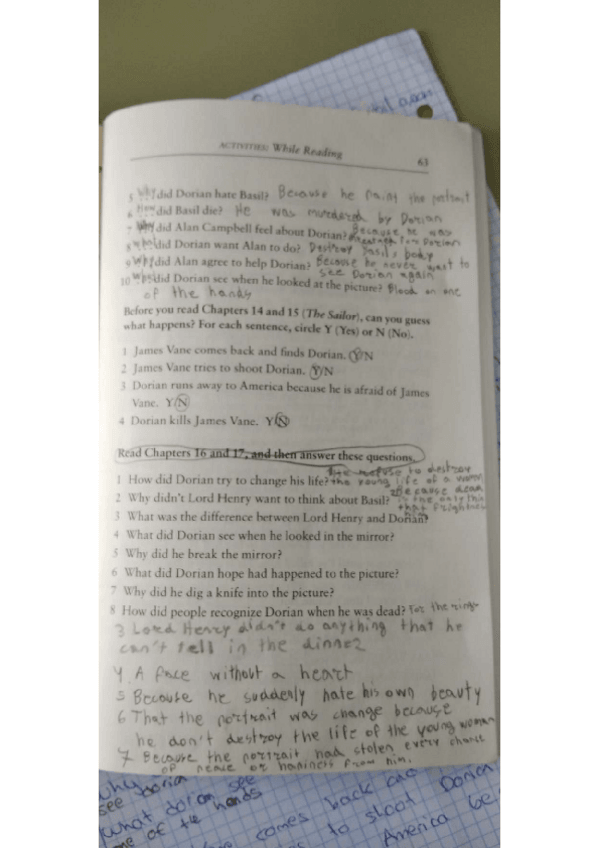 ACTIVITIES: While Reading
63
5 Why did Dorian hate Basil? Because he paint the portrait
6 How did Basil die? He was murdered by Dorian
7 Why did Alan Campbell feel about Dorian? Because he was
8 What did Dorian want Alan to do? Destroy Basil's body
9 Why did Alan agree to help Dorian? Because he never want to
see Dorian again
10 What did Dorian see when he looked at the picture? Blood on one
of the hands
Before you read Chapters 14 and 15 (The Sailor), can you guess
what happens? For each sentence, circle Y (Yes) or N (No).
1 James Vane comes back and finds Dorian. Y/N
2 James Vane tries to shoot Dorian. Y/N
3 Dorian runs away to America because he is afraid of James
Vane. Y/N
4 Dorian kills James Vane. Y/N
Read Chapters 16 and 17, and then answer these questions.
he refuse to destroy
1 How did Dorian try to change his life? the young life of a woman
2 Why didn't Lord Henry want to think about Basil? Because dead
is the only thin
that frightens
3 What was the difference between Lord Henry and Dorian?
4 What did Dorian see when he looked in the mirror?
5 Why did he break the mirror?
6 What did Dorian hope had happened to the picture?
7 Why did he dig a knife into the picture?
8 How did people recognize Dorian when he was dead? For the rings
3 Lord Henry didn't do anything that he
can't tell in the dinner
4 A face without a heart
5 Because he suddenly hate his own beauty
6 That the portrait was change because
he don't destroy the life of the young woman
7 Because the portrait had stolen every chance
of peace or hapiness from him.
why
see Doria
what dorian see
one of the hands
comes back and
to shoot Dorian
America be